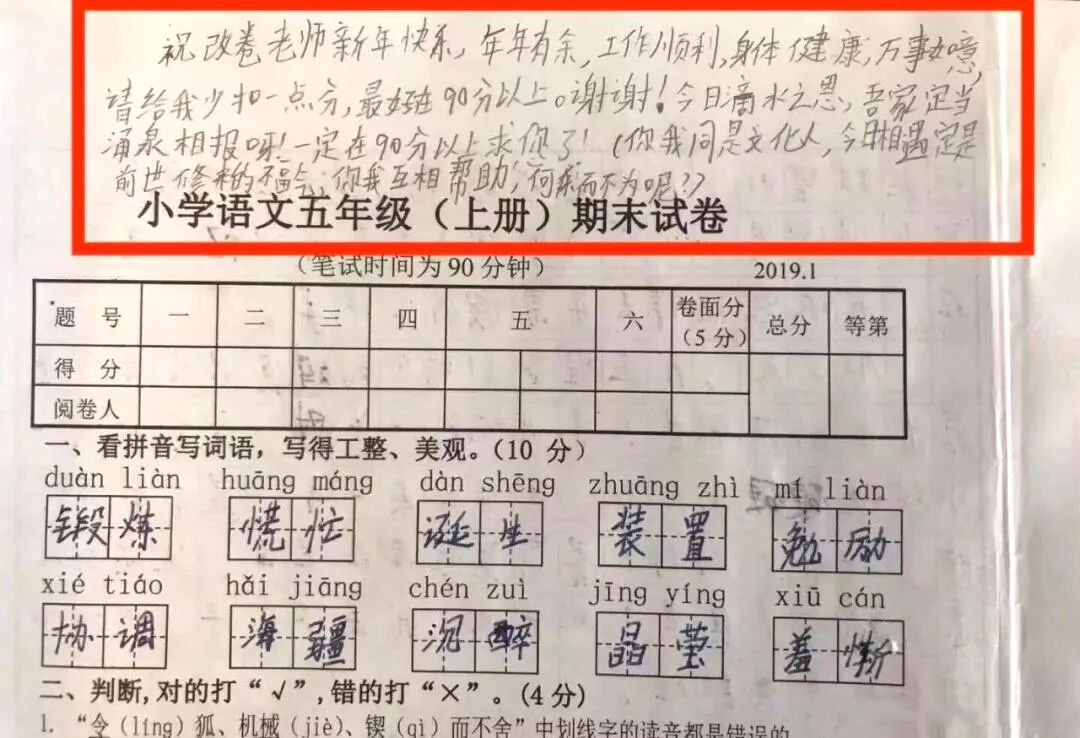 祝改卷老师新年快乐,年年有余,工作顺利,身体健康,万事如噫,
请给我少扣一点分,最好在90分以上。谢谢!今日滴水之恩,吾家定当
涌泉相报呀!一定在90分以上求你了!(你我同是文化人,今日相遇定是
前世修来的福气,你我互相帮助,何乐而不为呢??
小学语文五年级(上册)期末试卷
(笔试时间为90分钟) 2019.1
题 号 一 二 三 四 五 六 卷面分(5分) 总分 等第
得 分
阅卷人
一、看拼音写词语,写得工整、美观。(10 分)
duàn liàn huāng máng dàn shēng zhuāng zhì mǐ liàn
锻炼 慌忙 诞生 装置 勉励
xié tiáo hǎi jiāng chén zuì jīng yíng xiū cán
协调 海疆 沉醉 晶莹 羞惭
二、判断,对的打“√”,错的打“×”。(4分)
1. “令(líng)狐、机械(jiè)、锲(qì)而不舍”中划线字的读音都是错误的